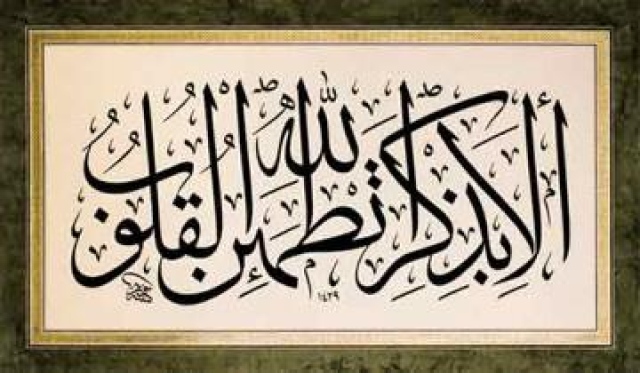 أَلَا بِذِكْرِ اللَّهِ تَطْمَئِنُّ الْقُلُوبُ
١٤٢٩